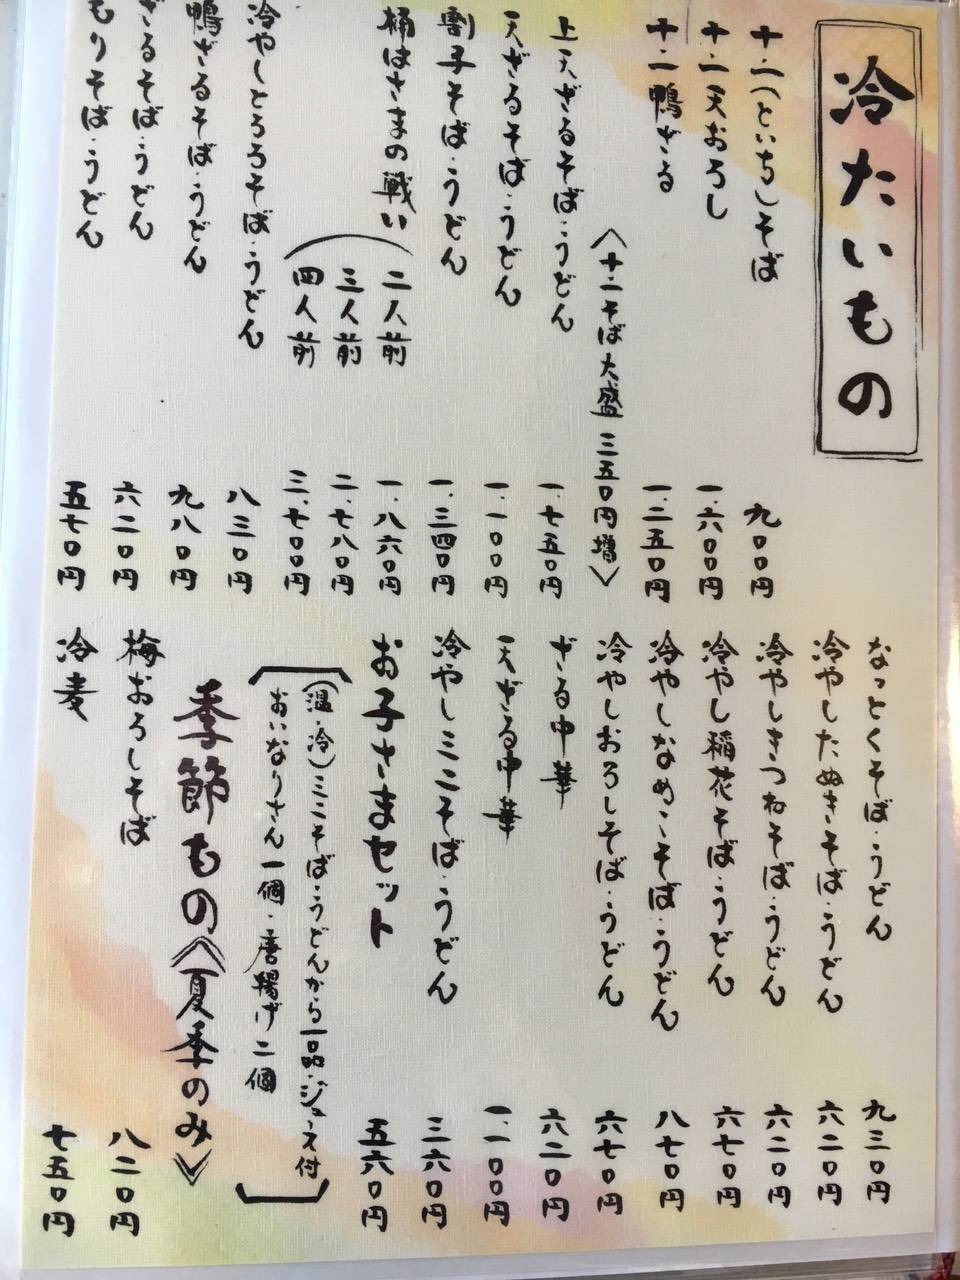 冷たいもの
十一(といち)そば 九〇〇円
十一天おろし 一.六〇〇円
十一鴨ざる 一.二五〇円
〈十一そば大盛 三五〇円増〉
上天ざるそば・うどん 一.七五〇円
天ざるそば・うどん 一.一〇〇円
割子そば・うどん 一.三四〇円
桶はざまの戦い
二人前 一.八六〇円
三人前 二.七八〇円
四人前 三.七〇〇円
冷やしとろろそば・うどん 八三〇円
鴨ざるそば・うどん 九八〇円
ざるそば・うどん 六二〇円
もりそば・うどん 五七〇円
なっとくそば・うどん 九三〇円
冷やしたぬきそば・うどん 六二〇円
冷やしきつねそば・うどん 六二〇円
冷やし稲花そば・うどん 六七〇円
冷やしなめこそば・うどん 八七〇円
冷やしおろしそば・うどん 六七〇円
ざる中華 六二〇円
天ざる中華 一.一〇〇円
冷やしミニそば・うどん 三六〇円
お子さまセット 五六〇円
(温・冷)ミニそば・うどんから一品・ジュース付
おいなりさん一個・唐揚げ二個
季節もの《夏季のみ》
梅おろしそば 八二〇円
冷麦 七五〇円